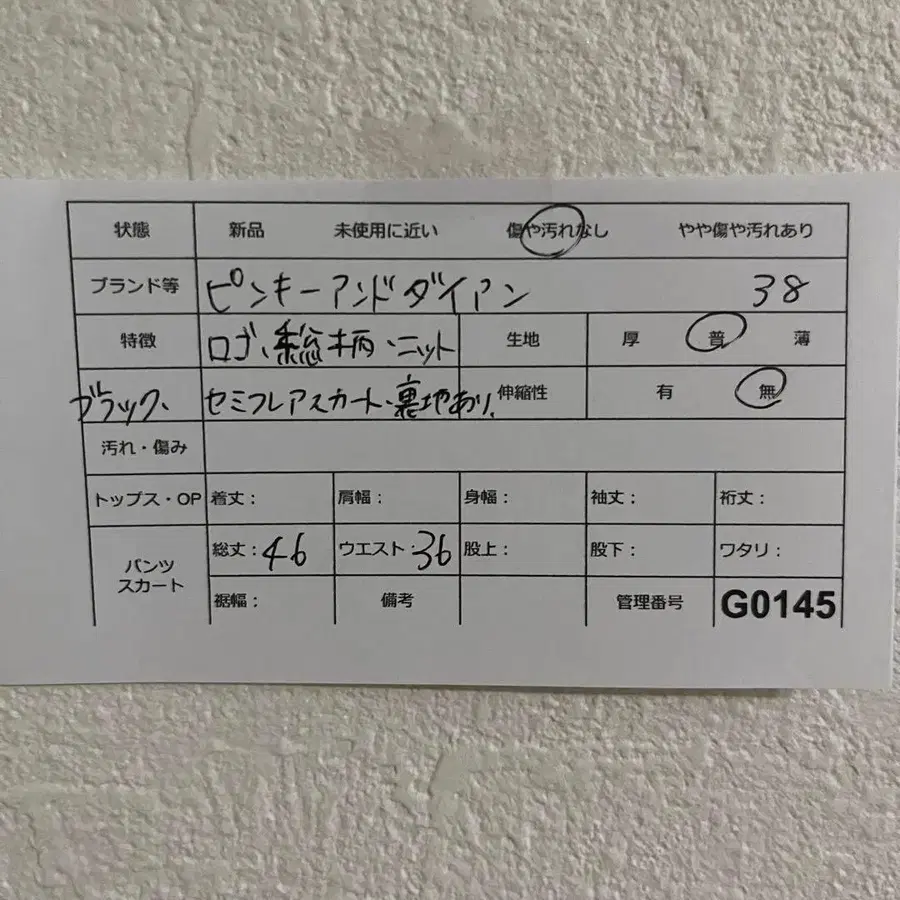 状態 新品 未使用に近い 傷や汚れなし やや傷や汚れあり
ブランド等 ピンキーアンドダイアン 38
特徴 ロゴ、総柄・ニット 生地 厚 普 薄
ブラック、 セミフレアスカート・裏地あり、 伸縮性 有 無
汚れ・傷み
トップス・OP 着丈: 肩幅: 身幅: 袖丈: 裄丈:
パンツ スカート 総丈:46 ウエスト:36 股上: 股下: ワタリ:
裾幅: 備考 管理番号 G0145